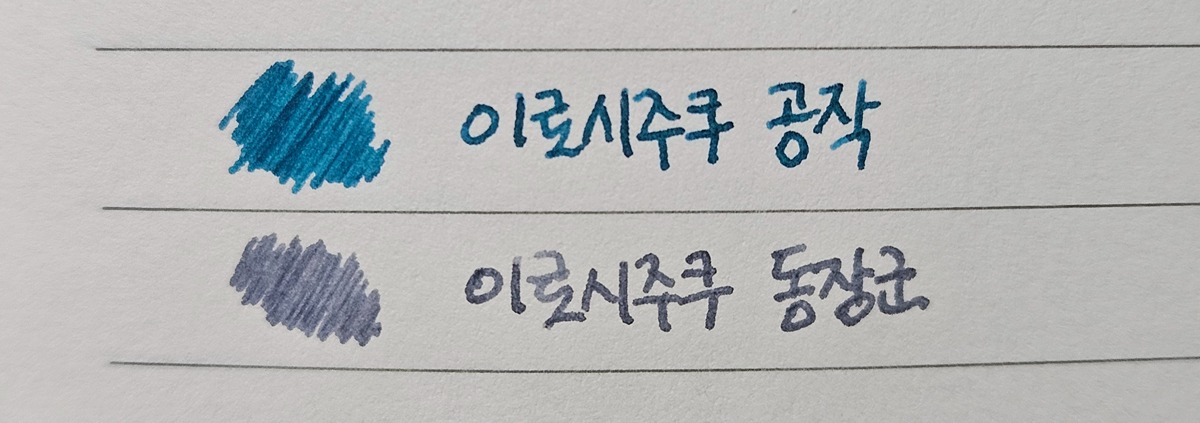 이로시주쿠 공작
이로시주쿠 동장군